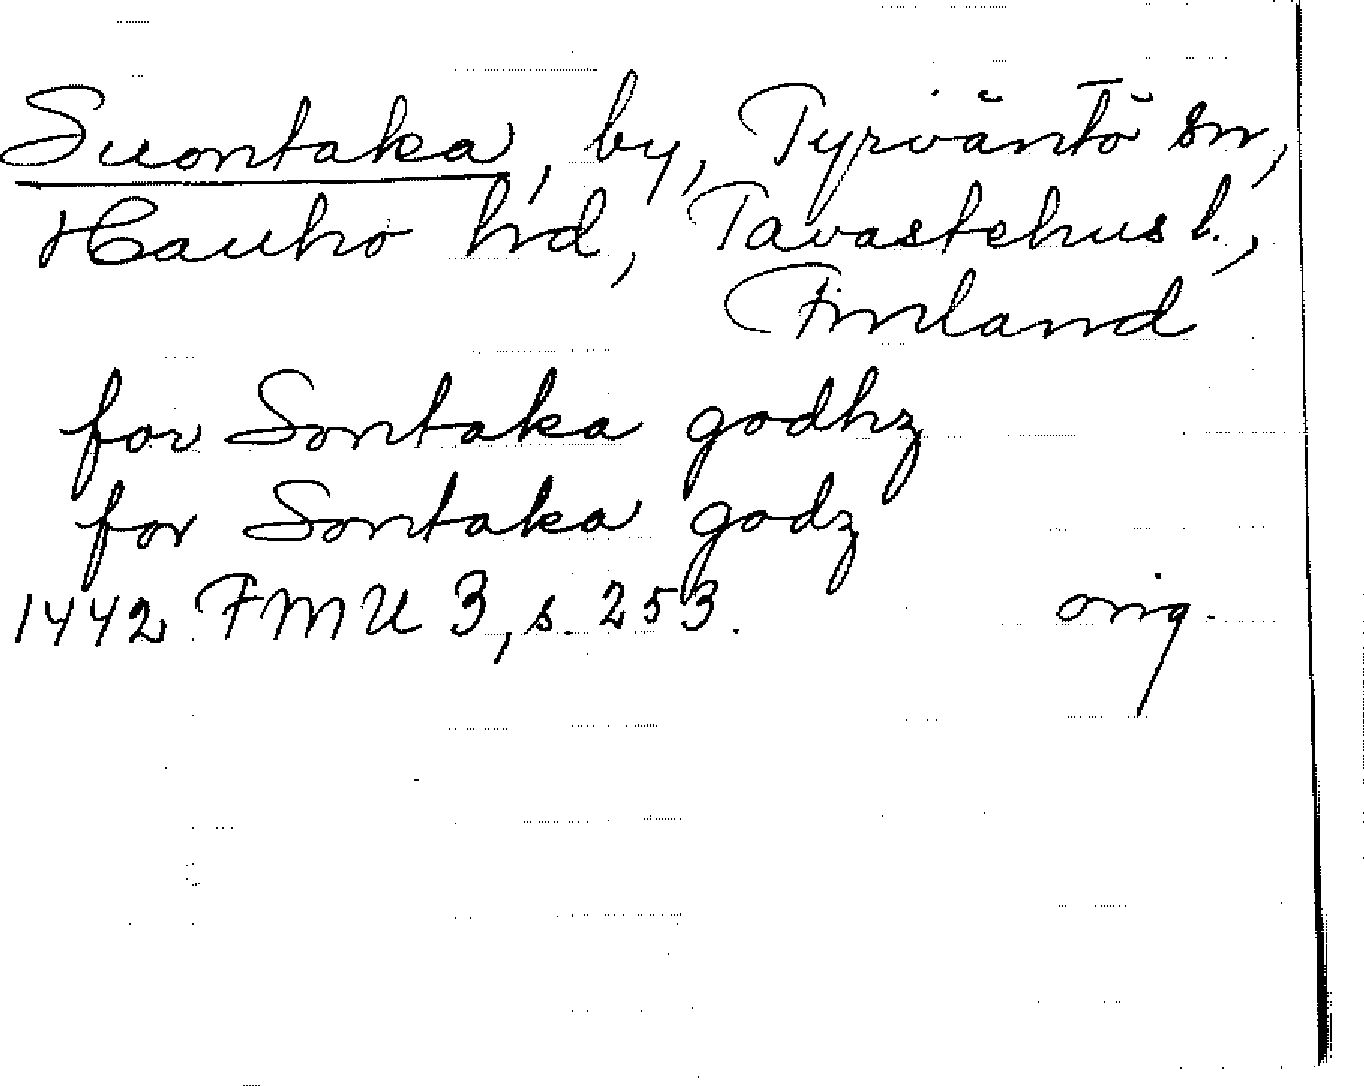 Suontaka, by, Tyrväntö sn,
Hauho hd, Tavastehus l.,
Finland
for Sontaka godhz
for Sontaka godz
1442 FMU 3, s. 253. orig.